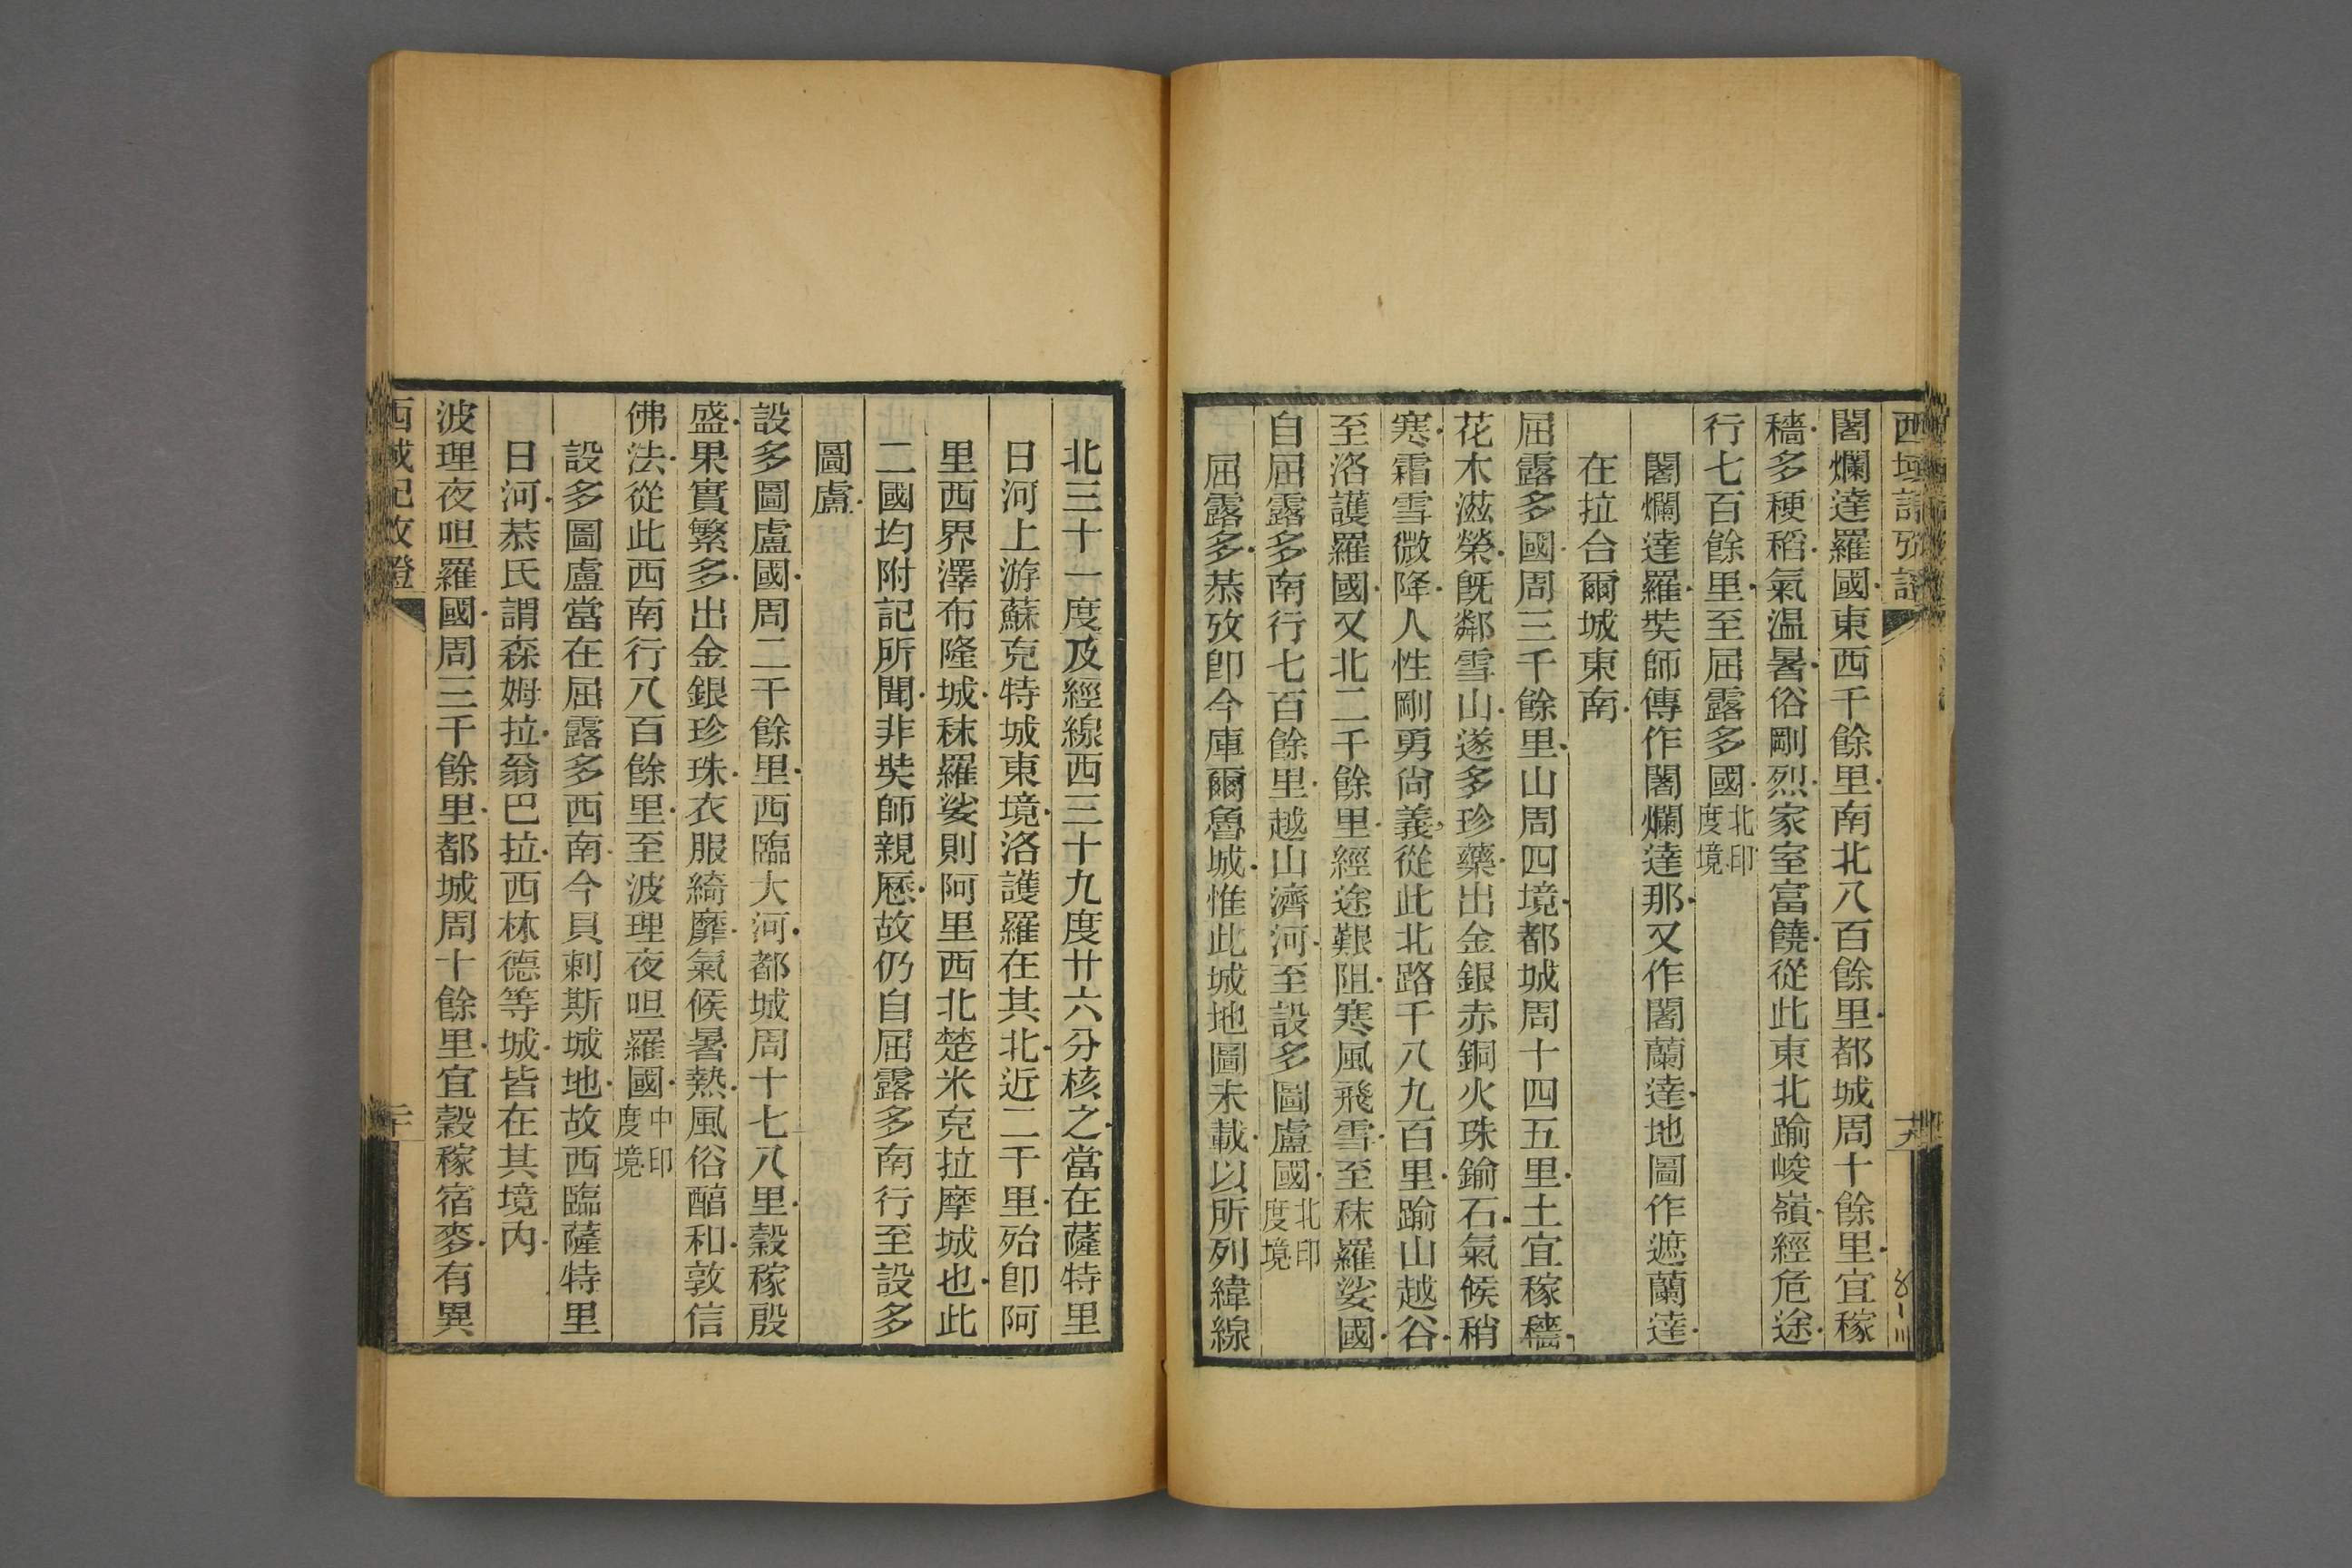 闍爛達羅國東西千餘里南北八百餘里都城周十餘里宜稼
穡多稉稻氣温暑俗剛烈家室富饒從此東北踰峻嶺經危途
行七百餘里至屈露多國北印度境
闍爛達羅奘師傳作闍爛達那又作闍蘭達地圖作遮蘭達
在拉合爾城東南
屈露多國周三千餘里山周四境都城周十四五里土宜稼穡
花木滋榮旣鄰雪山遂多珍藥出金銀赤銅火珠鍮石氣候稍
寒霜雪微降人性剛勇尚義從此北路千八九百里踰山越谷
至洛護羅國又北二千餘里經途艱阻寒風飛雪至秣羅娑國
自屈露多南行七百餘里越山濟河至設多圖盧國北印度境
屈露多恭攷卽今庫爾魯城惟此城地圖未載以所列緯線
北三十一度及經線西三十九度廿六分核之當在薩特里
日河上游蘇克特城東境洛護羅在其北近二千里殆卽阿
里西界澤布隆城秣羅娑則阿里西北楚米克拉摩城也此
二國均附記所聞非奘師親歷故仍自屈露多南行至設多
圖盧
設多圖盧國周二千餘里西臨大河都城周十七八里穀稼殷
盛果實繁多出金銀珍珠衣服綺靡氣候暑熱風俗醕和敦信
佛法從此西南行八百餘里至波理夜呾羅國中印度境
設多圖盧當在屈露多西南今貝剌斯城地故西臨薩特里
日河恭氏謂森姆拉翁巴拉西林德等城皆在其境內
波理夜呾羅國周三千餘里都城周十餘里宜穀稼宿麥有異